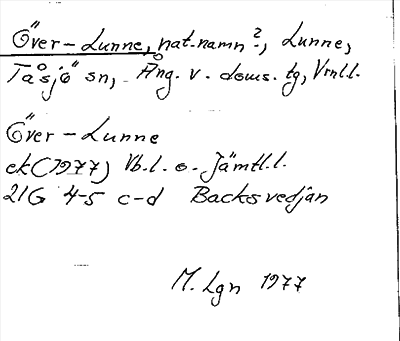 Över-Lunne, nat.namn ?, Lunne,
Tåsjö sn, Ång. v. doms. tg, Vrnl.l.
Över-Lunne
ek (1977) Vb.l. o. Jämtl.l.
21G 4-5 c-d Backsvedjan
M. Lgn 1977